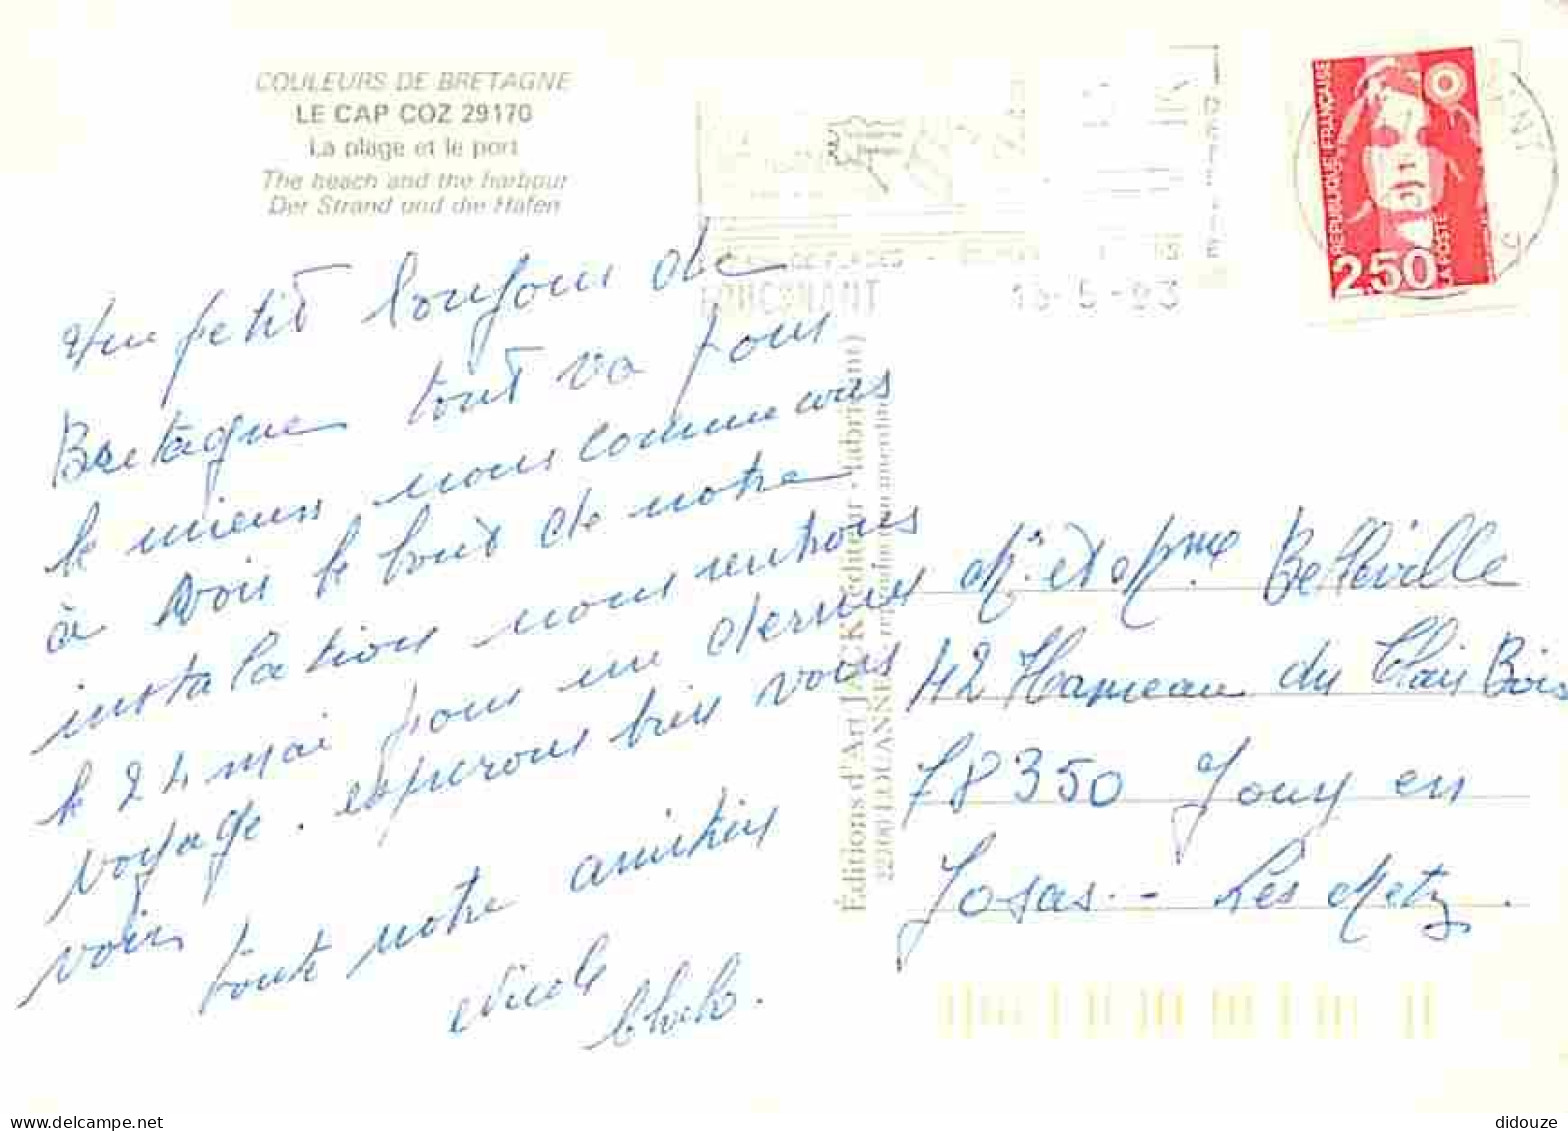 COULEURS DE BRETAGNE
LE CAP COZ 29170
La plage et le port
The beach and the harbour
Der Strand und die Hafen
Un petit bonjour de
Bretagne tout va pour
le mieux nous commencons
à voir le bout de notre
instalation nous rentrons
le 24 mai pour un dernier
voyage. esperons bien vous
voir
toute notre amitiés
Nicole
REPUBLIQUE FRANÇAISE
LA POSTE
2,50
FOUESNANT
Éditions d'Art JACK (éditeur - fabricant)
22700 LOUANNEC
Mr et Mme Belleville
42 Hameau du Clair Bois
78350 Jouy en
Josas - Les Metz.
didouze